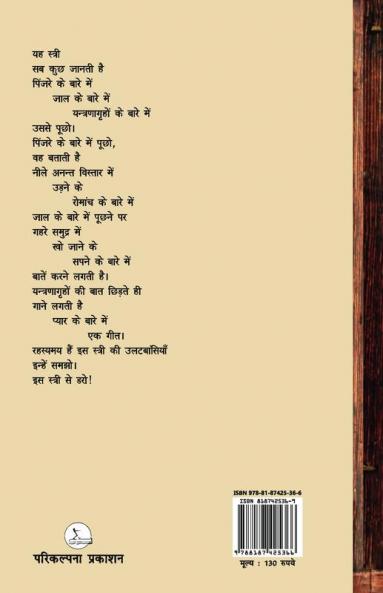 यह स्त्री
सब कुछ जानती है
पिंजरे के बारे में
जाल के बारे में
यन्त्रणागृहों के बारे में
उससे पूछो।
पिंजरे के बारे में पूछो,
वह बताती है
नीले अनन्त विस्तार में
उड़ने के
रोमांच के बारे में
जाल के बारे में पूछने पर
गहरे समुद्र में
खो जाने के
सपने के बारे में
बातें करने लगती है।
यन्त्रणागृहों की बात छिड़ते ही
गाने लगती है
प्यार के बारे में
एक गीत।
रहस्यमय हैं इस स्त्री की उलटबांसियाँ
इन्हें समझो।
इस स्त्री से डरो!
ISBN 978-81-87425-36-6
ISBN 8187425366-9
9788187425366
मूल्य : 130 रुपये
परिकल्पना प्रकाशन